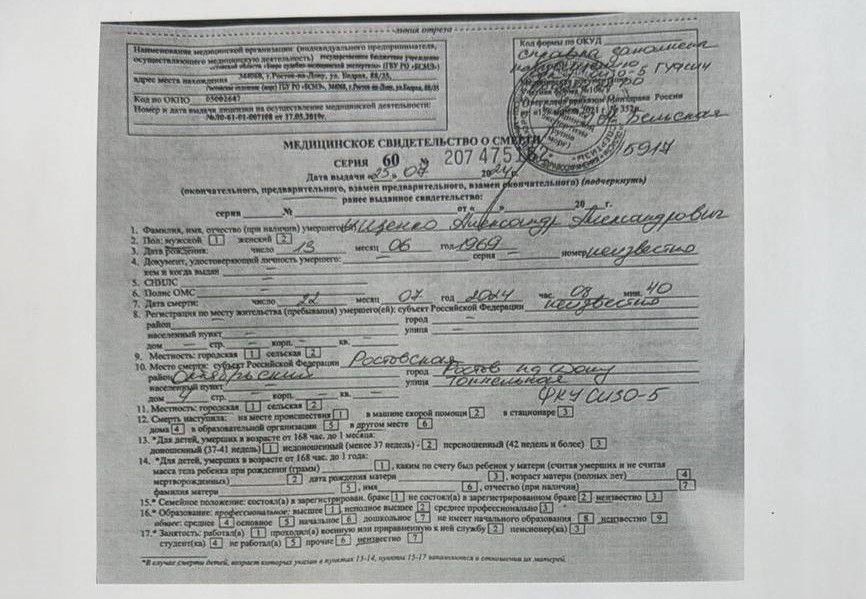 линия отреза
Наименование медицинской организации (индивидуального предпринимателя,
осуществляющего медицинскую деятельность) государственное бюджетное учреждение
«Бюро судебно-медицинской экспертизы» (ГБУ РО «БСМЭ»)
адрес места нахождения 344068, г.Ростов-на-Дону, ул. Бодрая, 88/35,
(ГБУ РО «БСМЭ», 344068, г.Ростов-на-Дону, ул.Бодрая, 88/35
Код по ОКПО 03002647
Номер и дата выдачи лицензии на осуществление медицинской деятельности:
№ЛО-61-01-007108 от 17.05.2019г.
Код формы по ОКУД
справка заполнена
СИЗО-5 ГУФСИН
Утверждена приказом Минздрава России
от «15» апреля 2021 г. № 352н
Бельская
5917
МЕДИЦИНСКОЕ СВИДЕТЕЛЬСТВО О СМЕРТИ
СЕРИЯ 60 № 207 475
Дата выдачи «25» 07 2024 г.
(окончательного, предварительного, взамен предварительного, взамен окончательного) (подчеркнуть)
ранее выданное свидетельство:
серия № от « » 20 г.
1. Фамилия, имя, отчество (при наличии) умершего Ищенко Александр Александрович
2. Пол: мужской 1 женский 2
3. Дата рождения: число 13 месяц 06 год 1969
4. Документ, удостоверяющий личность умершего: — серия — номер неизвестно
кем и когда выдан —
5. СНИЛС —
6. Полис ОМС —
7. Дата смерти: число 22 месяц 07 год 2024 час. 08 мин. 40
8. Регистрация по месту жительства (пребывания) умершего(ей): субъект Российской Федерации неизвестно
район — город —
населенный пункт — улица —
дом — стр. — корп. — кв. —
9. Местность: городская 1 сельская 2
10. Место смерти: субъект Российской Федерации Ростовская
район Октябрьский город Ростов на Дону
населенный пункт — улица Тоннельная
дом 4 стр. — корп. — кв. — ФКУ СИЗО-5
11. Местность: городская 1 сельская 2
12. Смерть наступила: на месте происшествия 1 в машине скорой помощи 2 в стационаре 3
дома 4 в образовательной организации 5 в другом месте 6
13. *Для детей, умерших в возрасте от 168 час. до 1 месяца:
доношенный (37-41 недель) 1 недоношенный (менее 37 недель) - 2 переношенный (42 недель и более) 3
14. *Для детей, умерших в возрасте от 168 час. до 1 года:
масса тела ребенка при рождении (грамм) 1 , каким по счету был ребенок у матери (считая умерших и не считая
мертворожденных) 2 дата рождения матери 3 , возраст матери (полных лет) 4
фамилия матери 5 , имя 6 , отчество (при наличии) 7
15.* Семейное положение: состоял(а) в зарегистрирован. браке 1 не состоял(а) в зарегистрированном браке 2 неизвестно 3
16.* Образование: профессиональное: высшее 1 неполное высшее 2 среднее профессиональное 3
общее: среднее 4 основное 5 начальное 6 дошкольное 7 не имеет начального образования 8 неизвестно 9
17.* Занятость: работал(а) 1 проходил(а) военную или приравненную к ней службу 2 пенсионер(ка) 3
студент(ка) 4 не работал(а) 5 прочие 6 неизвестно 7
*В случае смерти детей, возраст которых указан в пунктах 13-14, пункты 15-17 заполняются в отношении их матерей.